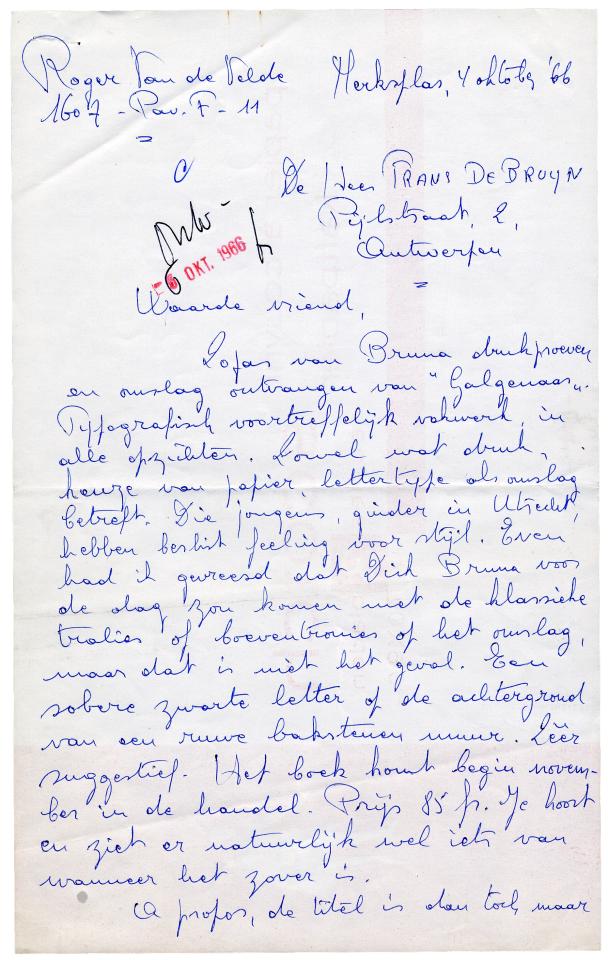 Roger Van de Velde
1607 - Pav. F - 11
Merksplas, 4 oktober '66
De Heer FRANS DE BRUYN
Pijlstraat, 2,
Antwerpen
6 OKT. 1966
Waarde vriend,
Zopas van Bruna drukproeven
en omslag ontvangen van "Galgenaas".
Typografisch voortreffelijk vakwerk, in
alle opzichten. Zowel wat druk,
keuze van papier, lettertype als omslag
betreft. Die jongens, ginder in Utrecht,
hebben beslist feeling voor stijl. Even
had ik gevreesd dat Dick Bruna voor
de dag zou komen met de klassieke
tralies of boeventronies op het omslag,
maar dat is niet het geval. Een
sobere zwarte letter op de achtergrond
van een ruwe bakstenen muur. Zéér
suggestief. Het boek komt begin novem-
ber in de handel. Prijs 85 fr. Je hoort
en ziet er natuurlijk wel iets van
wanneer het zover is.
A propos, de titel is dan toch maar